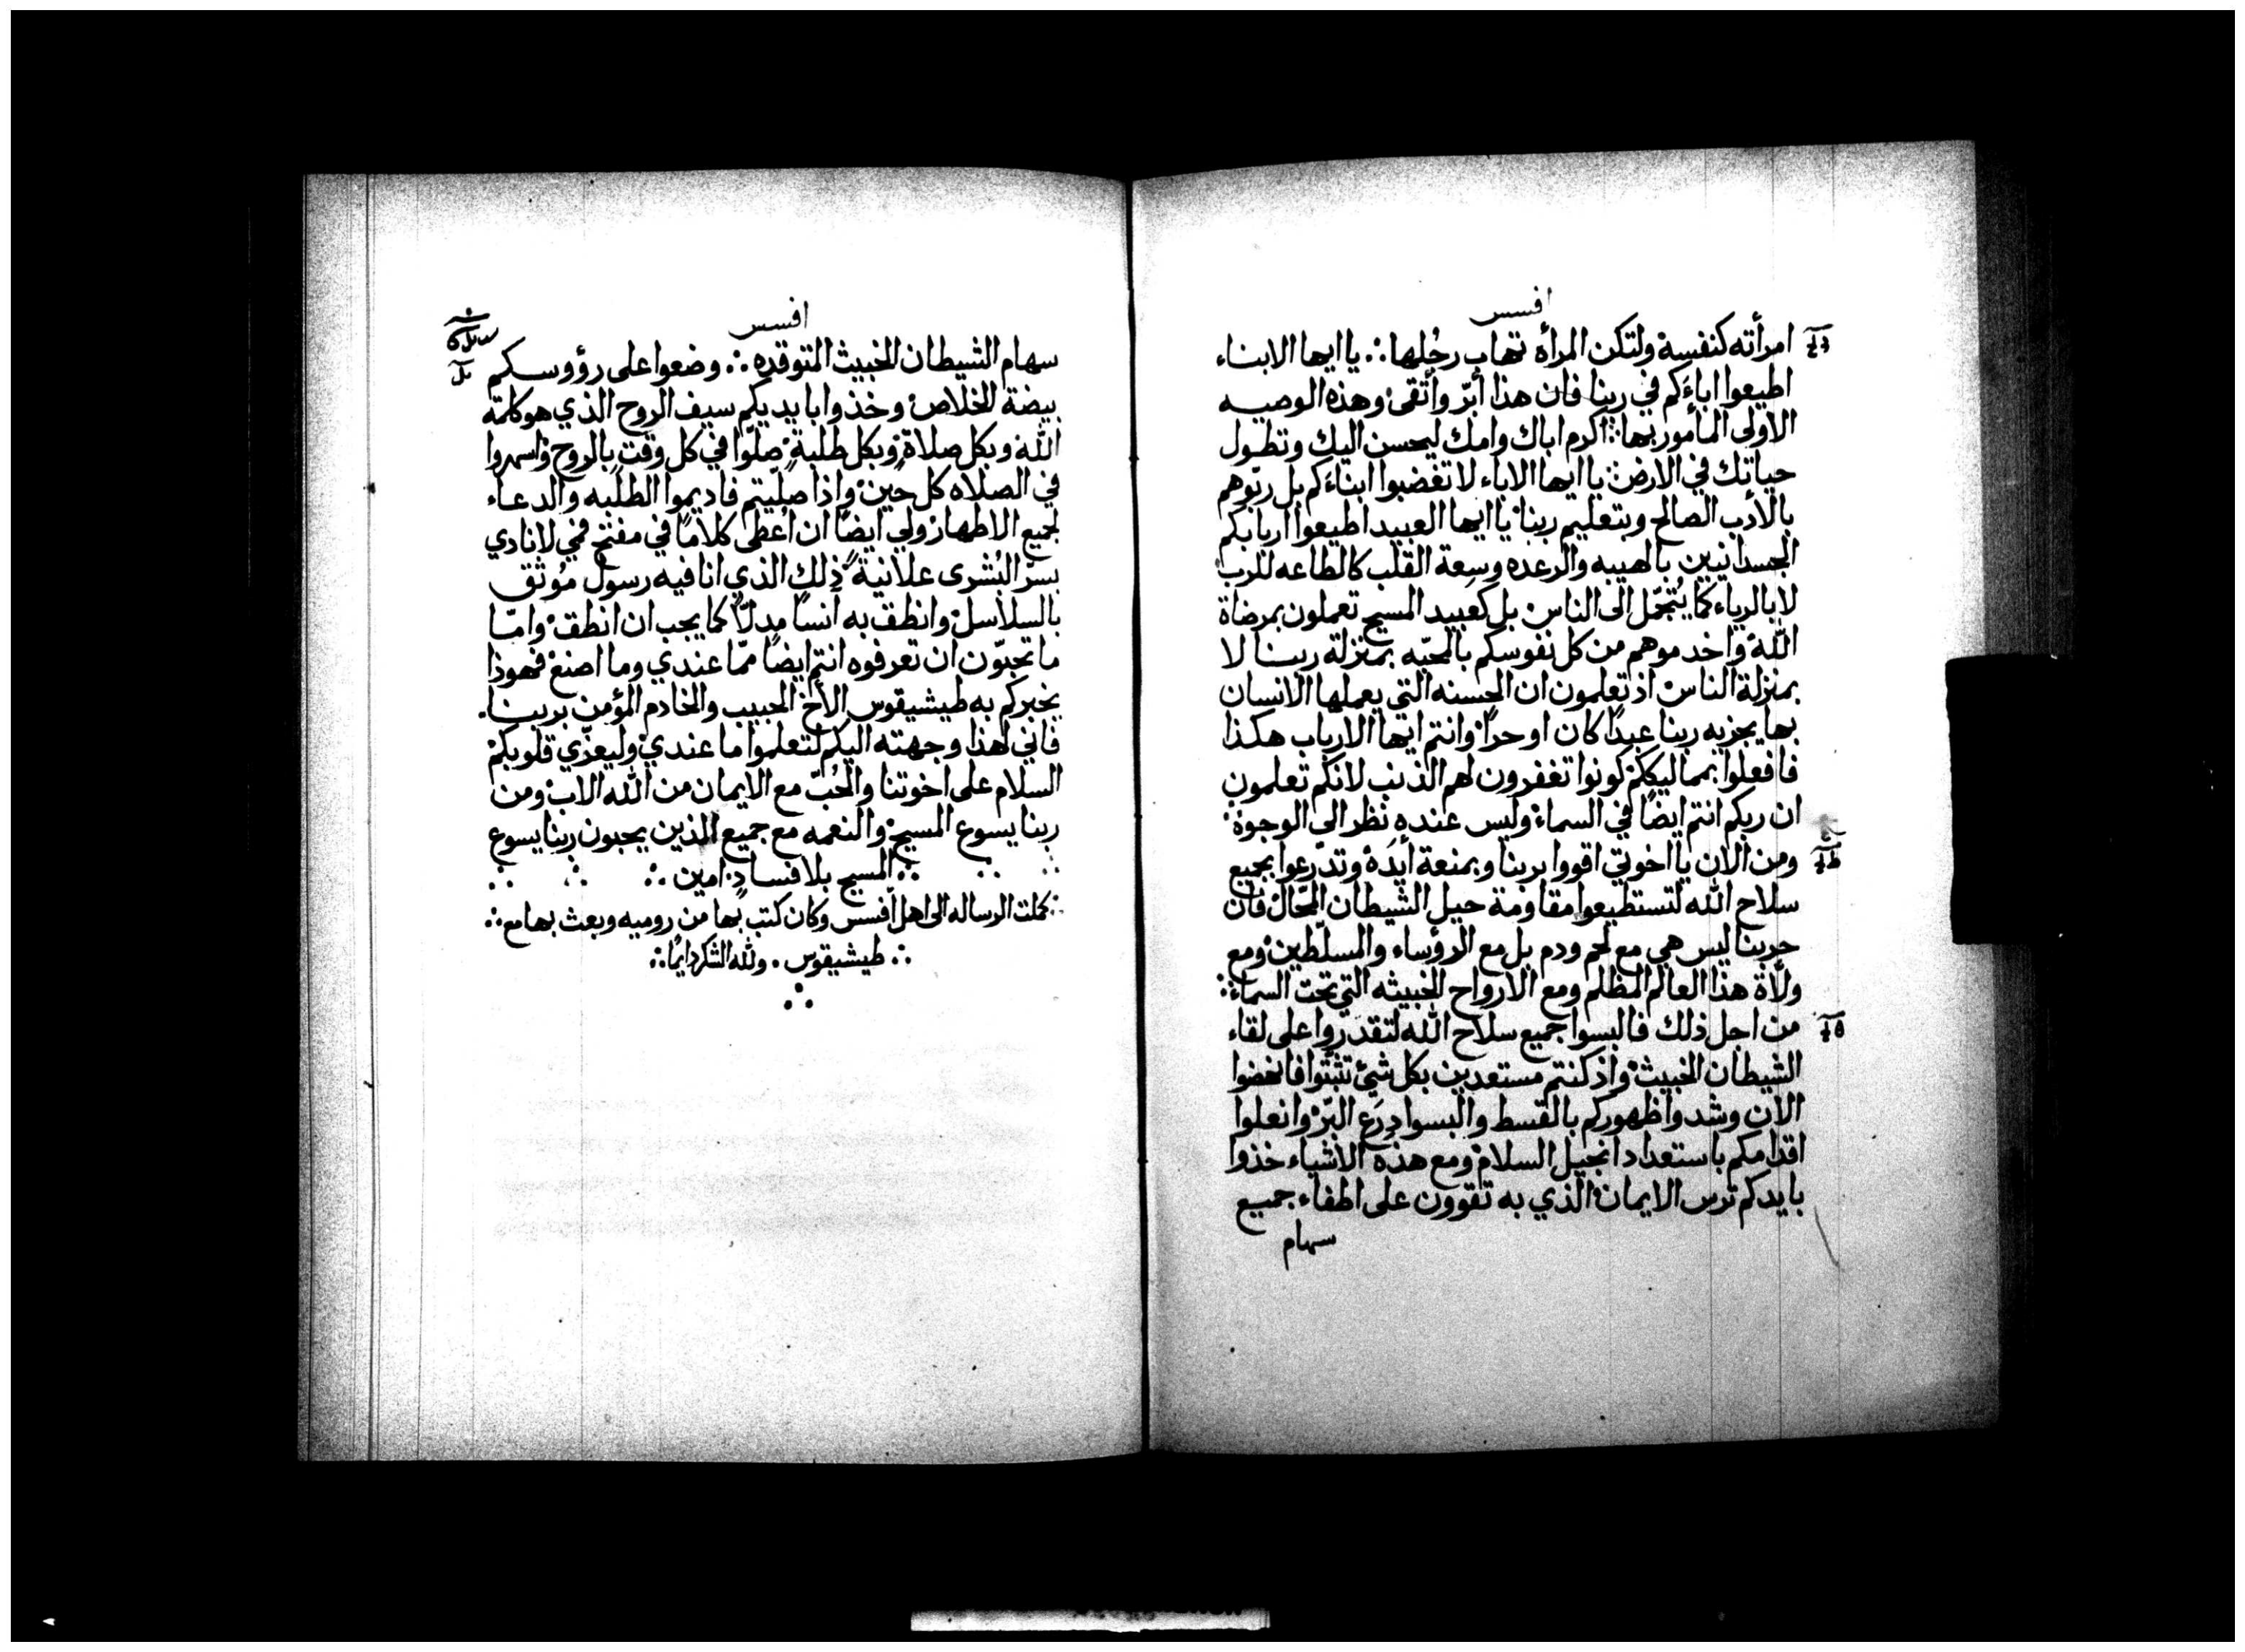 افسس
امرأته كنفسه ولتكن المرأة تهاب رجُلها ∴ يا ايها الابناء
اطيعوا اباءَكم في ربنا فان هذا أبرّ وأتقى وهذه الوصيه
الاولى المأمور بها: اكرم اباك وامك ليحسن اليك وتطول
حياتك في الارض: يا ايها الاباء لا تغضبوا ابناءَكم بل ربّوهم
بالأدب الصالح وبتعليم ربنا: يا ايها العبيد اطيعوا اربابكم
الجسدانيين بالهيبه والرعده وسِعة القلب كالطاعه للرب
لا بالرياء كما يُتجمّل الى الناس: بل كعَبيد المسيح تعملون بمرضاة
الله: واخدموهم من كل نفوسكم بالمحبّه بمنزلة ربنا لا
بمنزلة الناس: اذ تعلمون ان الحسنه التي يعملها الانسان
بها يجزيه ربنا عبدًا كان او حرًا: وانتم ايها الارباب هكذا
فافعلوا بمماليككم: كونوا تغفرون لهم الذنب لانكم تعلمون
ان ربكم انتم ايضًا في السماء: وليس عنده نظر الى الوجوه:
ومن الان يا اخوتي اقووا بربنا وبمنعة أيدُه: وتدّرعوا بجميع
سلاح الله لتستطيعوا مقاومة حيل الشيطان المحّال: فان
حربنا ليس هي مع لحم ودم بل مع الرؤساء والمسلّطين: ومع
ولاة هذا العالم المظلم ومع الارواح الخبيثه التي تحت السماء:
من اجل ذلك فالبسوا جميع سلاح الله لتقدروا على لقاء
الشيطان الخبيث: واذ كنتم مستعدين بكل شيء تثبتوا فانهضوا
الان وشدوا ظهوركم بالقسط والبسوا دِرَع البّر: وانعلوا
اقدامكم باستعداد انجيل السلام: ومع هذه الاشياء خذوا
بايدكم ترس الايمان: الذي به تقوون على اطفاء جميع
سهام
افسس
سهام الشيطان الخبيث المتوقده ∴ وضعوا على رؤوسكم
بيضة الخلاص: وخذوا بايديكم سيف الروح الذي هو كلمة
الله: وبكل صلاة: وبكل طلبة: صلّوا في كل وقت بالروح: واسهروا
في الصلاه كل حين: واذا صلّيتم فاديموا الطلبه والدعاء
لجميع الاطهار: ولي ايضًا ان اُعطى كلامًا في مفتح فمي لانادي
بسرّ البُشرى علانيةً: ذلك الذي انا فيه رسول مُوثق
بالسلاسل: وانطق به أنسًا مدلاًّ كما يجب ان انطق: وامّا
ما تحبّون ان تعرفوه انتم ايضًا ممّا عندي وما اصنع: فهوذا
يخبركم به طيشيقوس الأخ الحبيب والخادم المؤمن بربنا.
فاني لهذا وجهته اليكم لتعلموا ما عندي: وليعزّي قلوبكم:
السلام على اخوتنا والحُبّ مع الايمان من الله الاب: ومن
ربنا يسوع المسيح: والنعمه مع جميع الذين يحبون ربنا يسوع
∴ المسيح بلا فساد: امين ∴
∴ كملت الرساله الى اهل افسس وكان كتب بها من روميه وبعث بها مع ∴
∴ طيشيقوس . ولله الشكر دايمًا ∴